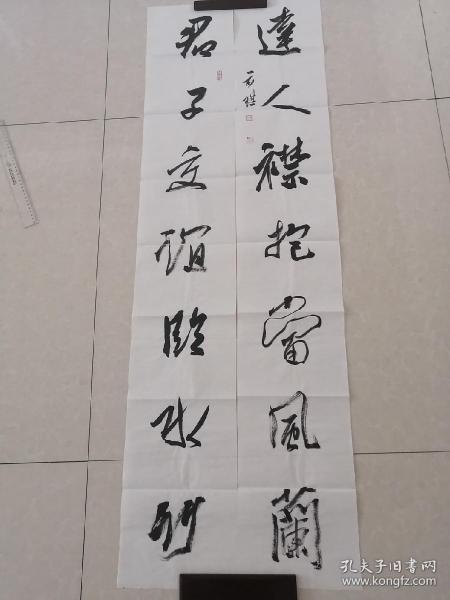 達人襟抱當風蘭
君子交誼臨水竹
孔夫子旧书网
www.kongfz.com